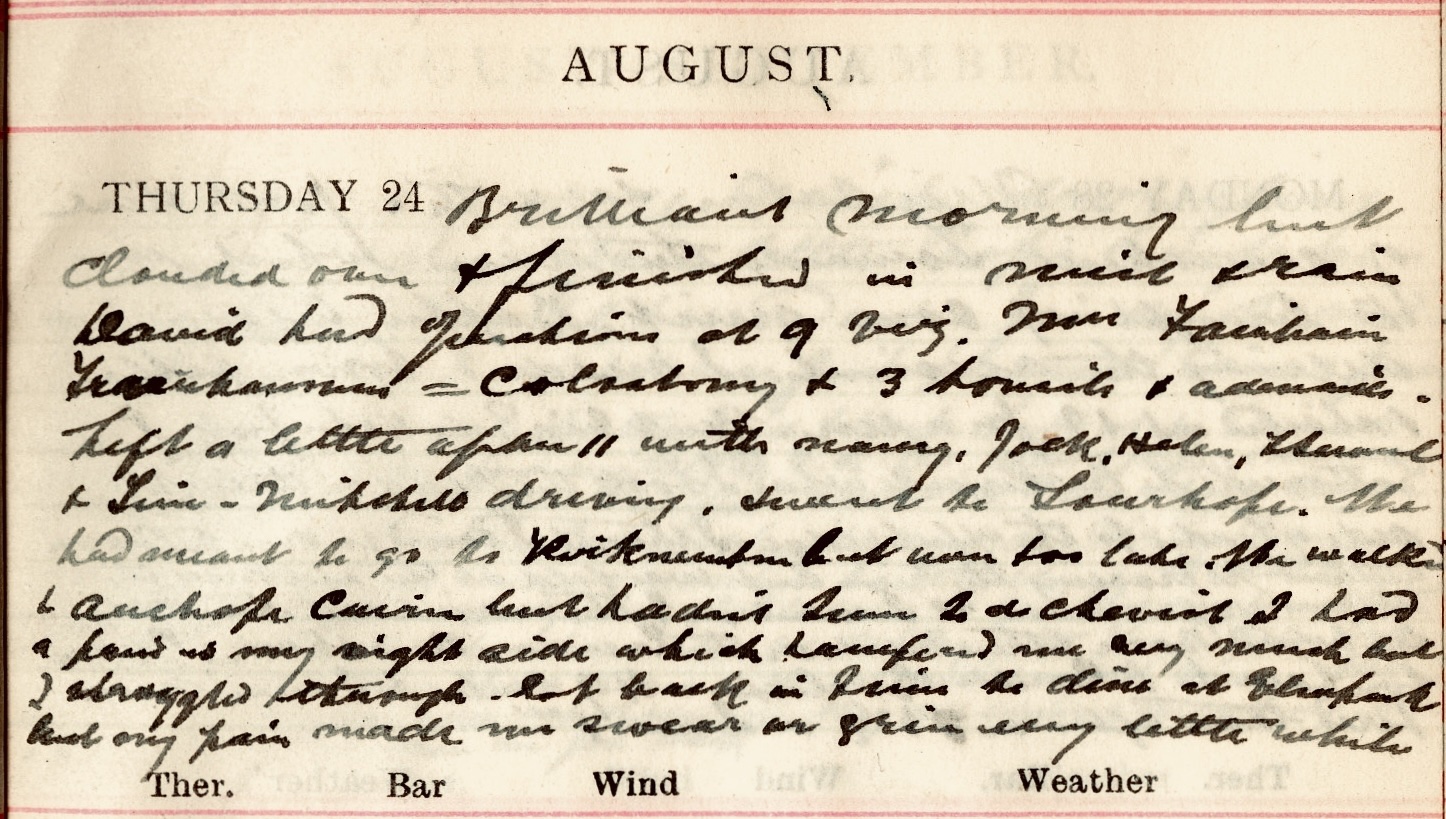 AUGUST.
THURSDAY 24 Brilliant morning but
clouded over & finished in mist & rain
David had operations at 9 viz. Mrs Fairbairn
= Colostomy & 3 tonsils & adenoids.
Left a little after 11 with nancy, Jock, Helen,
& Tim - Mitchell driving. & went to Sourhope. We
had meant to go to Kirknewton but were too late. We walked
to Auchope Cairn but hadn't time to do Cheviot I had
a pain in my right side which hampered me very much but
I struggled through. Got back in time to dine at
but my pain made me swear or grin every little while
Ther. Bar Wind Weather